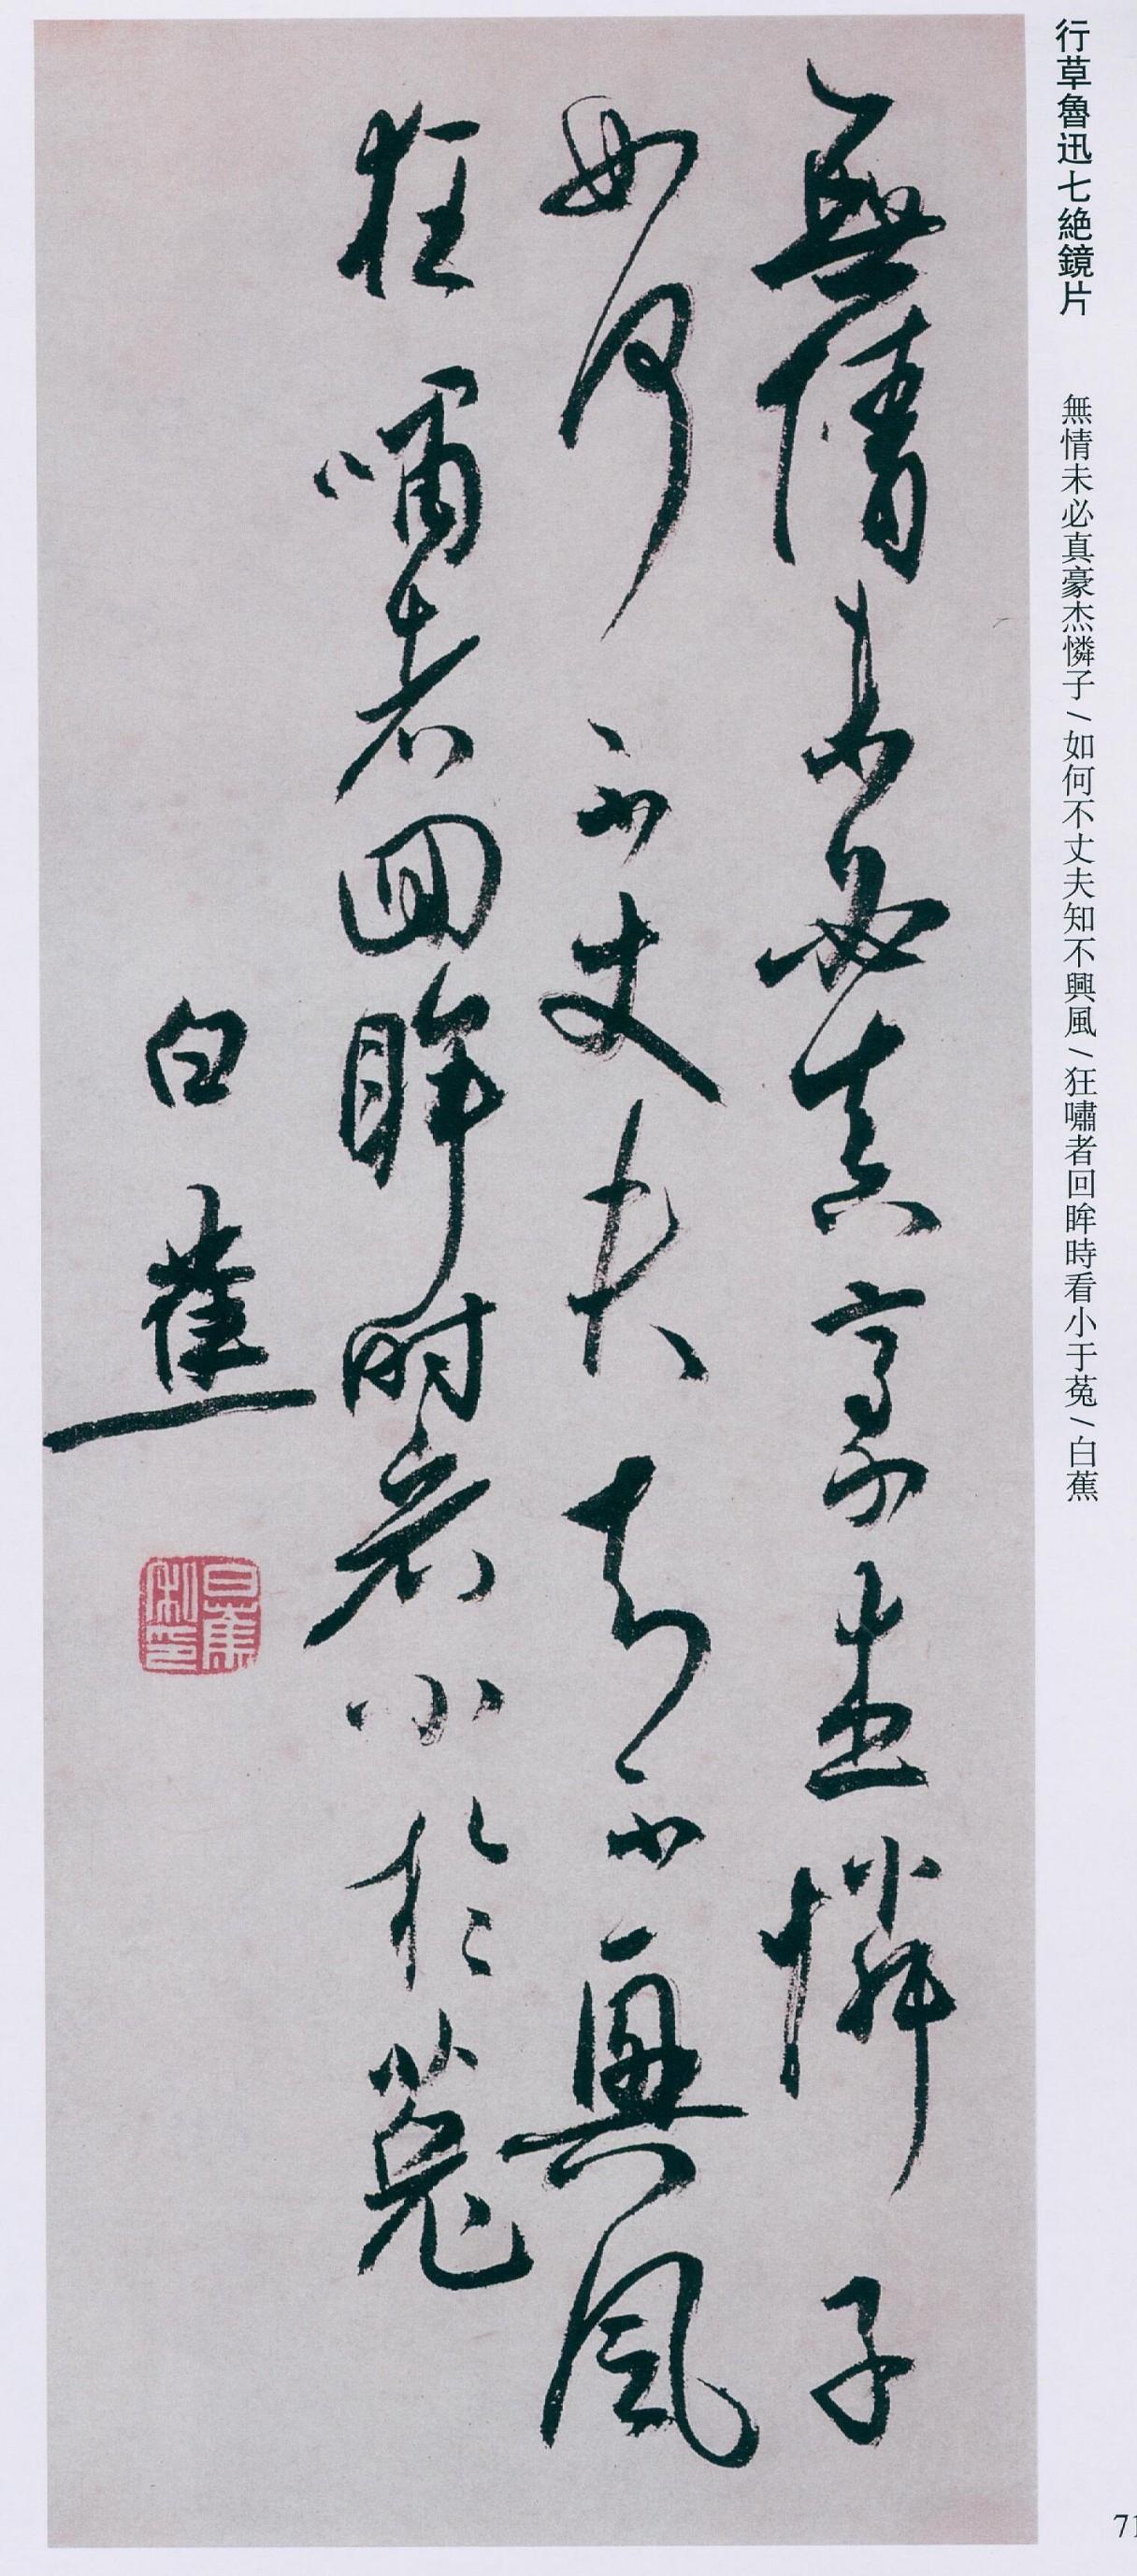 行草魯迅七絶鏡片
無情未必真豪杰憐子/如何不丈夫知不興風/狂嘯者回眸時看小于菟/白蕉
無情未必真豪杰憐子
如何不丈夫知不興風
狂嘯者回眸时看小於菟
白蕉
白蕉私印
71